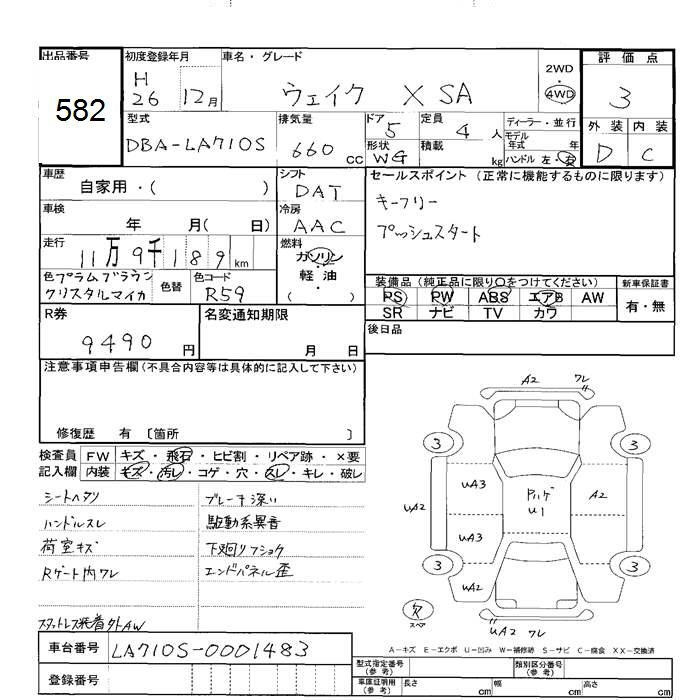 出品番号
582
初度登録年月
H 26 12月
車名・グレード
ウェイク X SA
2WD
4WD
評価点
3
外装 内装
D C
型式
DBA-LA710S
排気量
660 cc
ドア 5
形状 WG
定員 4 人
積載 kg
ディーラー・並行
モデル年式 年
ハンドル 左・右
車歴
自家用・( )
シフト
DAT
セールスポイント(正常に機能するものに限ります)
キーフリー
プッシュスタート
車検
年 月( 日)
冷房
AAC
走行
11万9千189km
燃料
ガソリン
軽・油
( )
色 プラムブラウン
クリスタルマイカ
色替
色コード
R59
装備品(純正品に限り○をつけてください)
PS PW ABS エアB AW
SR ナビ TV カワ
新車保証書
有・無
R券
9490円
名変通知期限
月 日
後日品
注意事項申告欄(不具合内容等は具体的に記入して下さい)
修復歴 有 〔箇所 〕
検査員記入欄
FW キズ・飛石・ヒビ割・リペア跡・×要
内装 キズ・汚れ・コゲ・穴・スレ・キレ・破レ
シートヘタリ
ブレーキ深い
ハンドルスレ
駆動系異音
荷室キズ
下廻りフショク
Rゲート内ワレ
エンドパネル歪
スタットレス装着外AW
A2 ワレ
3 3
UA3
UA2
Pハゲ
U1
A2
UA3
3 3
UA2
欠
スペア
UA2 ワレ
A-キズ E-エクボ U-凹み W-補修跡 S-サビ C-腐食 XX-交換済
車台番号
LA710S-0001483
登録番号
型式指定番号(参考)
類別区分番号(参考)
車庫証明用(参考)
長さ cm
幅 cm
高さ cm